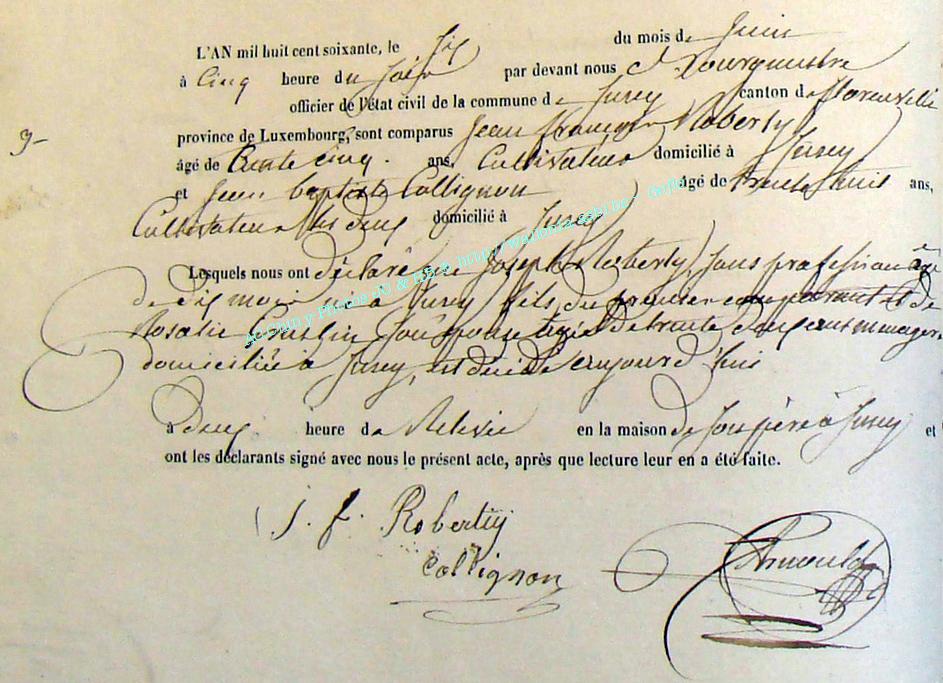 L'AN mil huit cent soixante, le six du mois de Juin
à Cinq heure du Soir par devant nous Bourgmestre
officier de l'état civil de la commune de Suxy canton de florenville
9-
province de Luxembourg, sont comparus Jean françois Roberty
âgé de trente cinq. ans, Cultivateur domicilié à Suxy
et Jean baptiste Collignon âgé de trente huit ans,
Cultivateur deux domicilié à Suxy
Lesquels nous ont déclaré que Joseph Roberty, sans profession âgé
de dix mois né à Suxy fils du premier comparant et de
Rosalie son épouse âgée de trente deux ans ménagère
domiciliée à Suxy, est décédé aujourd'hui
à deux heure de Relevée en la maison de son père à Suxy et
ont les déclarants signé avec nous le présent acte, après que lecture leur en a été faite.
J. f. Roberty
Collignon
Arnould